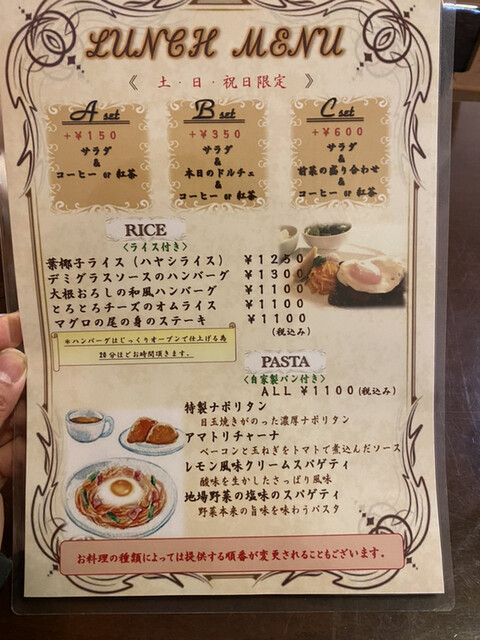 LUNCH MENU
《 土・日・祝日限定 》
A set
+¥150
サラダ
&
コーヒー or 紅茶
B set
+¥350
サラダ
&
本日のドルチェ
&
コーヒー or 紅茶
C set
+¥600
サラダ
&
前菜の盛り合わせ
&
コーヒー or 紅茶
RICE
〈ライス付き〉
葉椰子ライス（ハヤシライス） ¥1250
デミグラスソースのハンバーグ ¥1300
大根おろしの和風ハンバーグ ¥1100
とろとろチーズのオムライス ¥1100
マグロの尾の身のステーキ ¥1100
(税込み)
※ハンバーグはじっくりオーブンで仕上げる為
20分ほどお時間頂きます。
PASTA
〈自家製パン付き〉
ALL ¥1100(税込み)
特製ナポリタン
目玉焼きがのった濃厚ナポリタン
アマトリチャーナ
ベーコンと玉ねぎをトマトで煮込んだソース
レモン風味クリームスパゲティ
酸味を生かしたさっぱり風味
地場野菜の塩味のスパゲティ
野菜本来の旨味を味わうパスタ
お料理の種類によっては提供する順番が変更されることもございます。